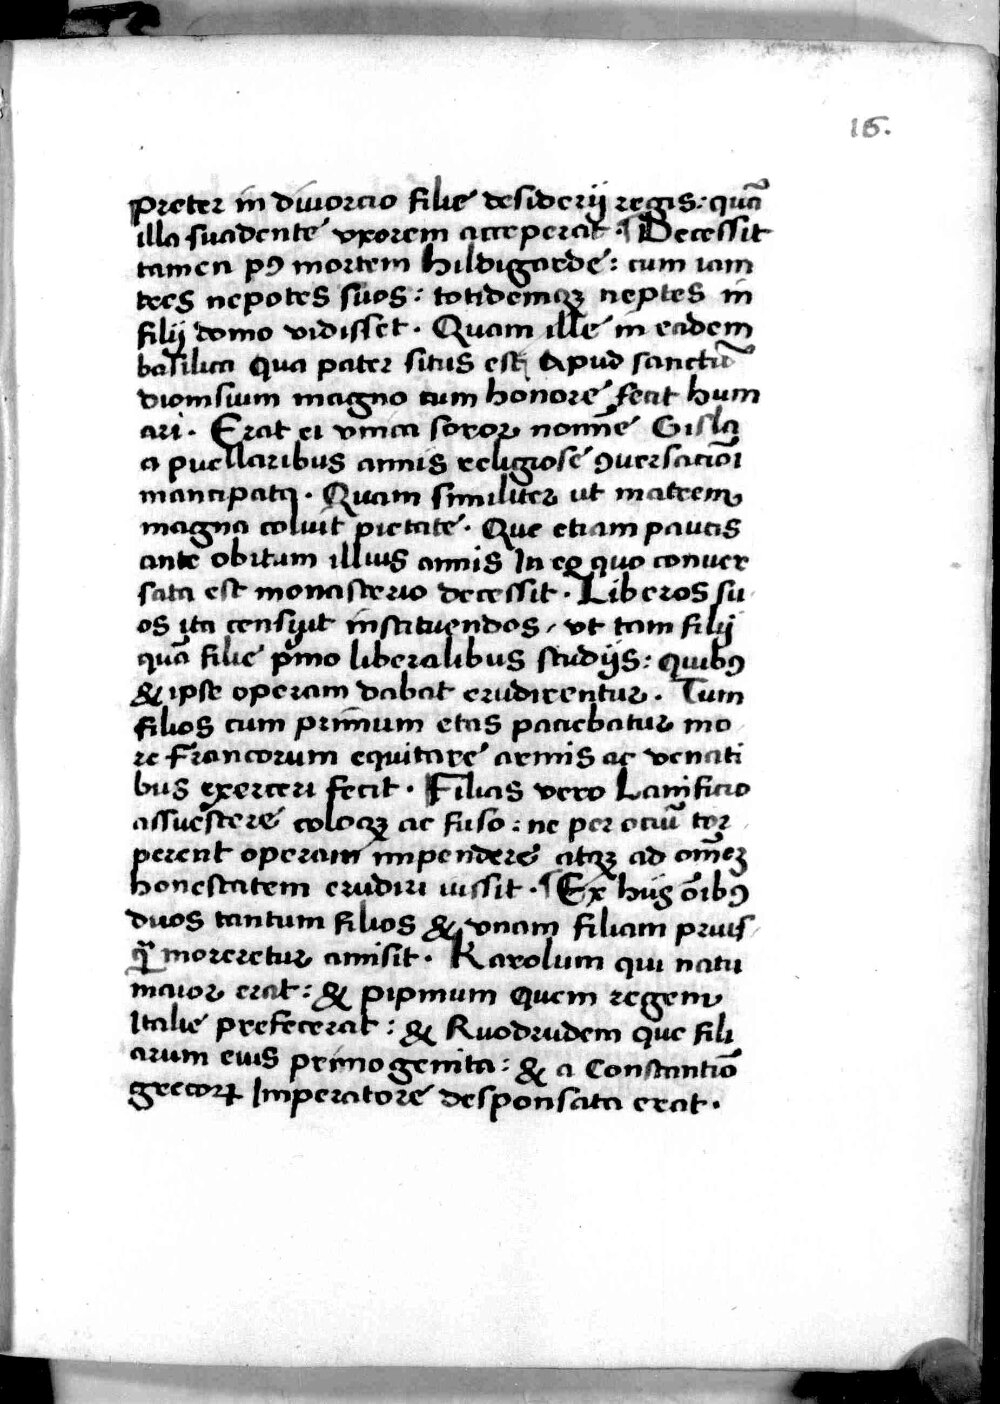 16.
preter in diuorcio filie desiderij regis: quā
illa suadente vxorem acceperat. ¶ Decessit
tamen pꝯ mortem hildigarde: cum iam
tres nepotes suos: totidemqꝫ neptes in
filij domo vidisset. Quam ille in eadem
basilica qua pater situs est apud sanctū
dionisium magno cum honore fecit hum
ari. Erat ei vnica soror nomīe Gisla
a puellaribus annis religiose ꝯuersacōi
mancipata. Quam similiter ut matrem
magna coluit pietate. Que etiam paucis
ante obitum illius annis In eo quo conuer
sata est monasterio decessit. Liberos su
os ita censuit instituendos, vt tam filij
quā filie pͥmo liberalibus studijs: quibꝯ
& ipse operam dabat erudirentur. Tum
filios cum primum etas paciebatur mo
re francorum equitare armis ac venati
bus exerceri fecit. Filias vero Lanificio
assuescere coloqꝫ ac fuso: ne per ociū tor
perent operam impendere atqꝫ ad om̄eꝫ
honestatem erudiri iussit. ¶ Ex hijs oībꝯ
duos tantum filios & vnam filiam prius
qᷓ moreretur amisit. Karolum qui natu
maior erat: & pipinum quem regem
Italie prefecerat: & Ruodrudem que fili
arum eius primogenita: & a Constantīo
grecoꝝ Imperatore desponsata erat.